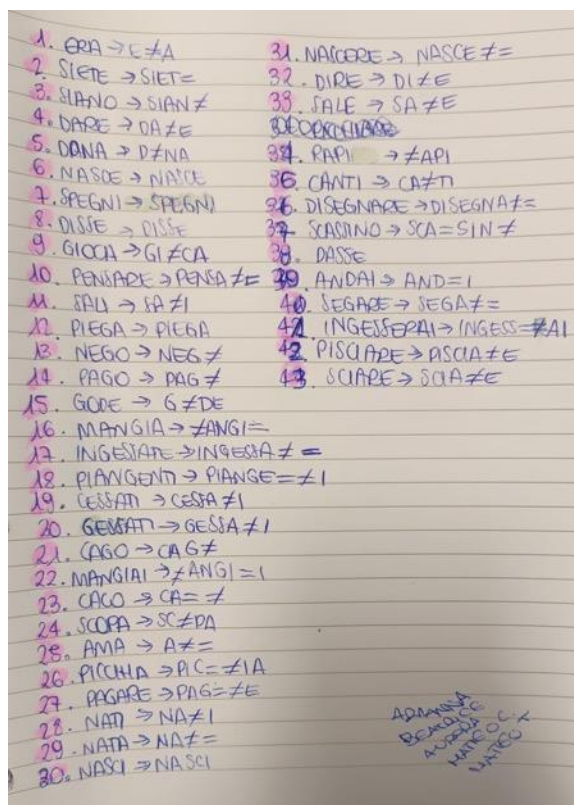 1. ERA → E≠A
2. SIETE → SIET=
3. SIANO → SIAN≠
4. DARE → DA≠E
5. DONA → D≠NA
6. NASCE → NASCE
7. SPEGNI → SPEGNI
8. DISSE → DISSE
9. GIOCA → GI≠CA
10. PENSARE → PENSA≠=
11. SALI → SA≠I
12. PIEGA → PIEGA
13. NEGO → NEG≠
14. PAGO → PAG≠
15. GODE → G≠DE
16. MANGIA → ≠ANGI=
17. INGESSATE → INGESSA≠=
18. PIANGENTI → PIANGE=≠I
19. CESSATI → CESSA≠I
20. GESSATI → GESSA≠I
21. CAGO → CAG≠
22. MANGIAI → ≠ANGI=I
23. CACO → CA=≠
24. SCOPA → SC≠PA
25. AMA → A≠=
26. PICCHIA → PIC=≠IA
27. PAGARE → PAG=≠E
28. NATI → NA≠I
29. NATA → NA≠=
30. NASCI → NASCI
31. NASCERE → NASCE≠=
32. DIRE → DI≠E
33. SALE → SA≠E
34. RAPI → ≠API
35. CANTI → CA≠TI
36. DISEGNARE → DISEGNA≠=
37. SCASSINO → SCA=SIN≠
38. DASSE
39. ANDAI → AND=I
40. SEGARE → SEGA≠=
41. INGESSERAI → INGESS=≠AI
42. PISCIARE → PISCIA≠E
43. SCIARE → SCIA≠E
ADRIANNA
BEATRICE
AURORA
MATTEO C.
MATTEO T.